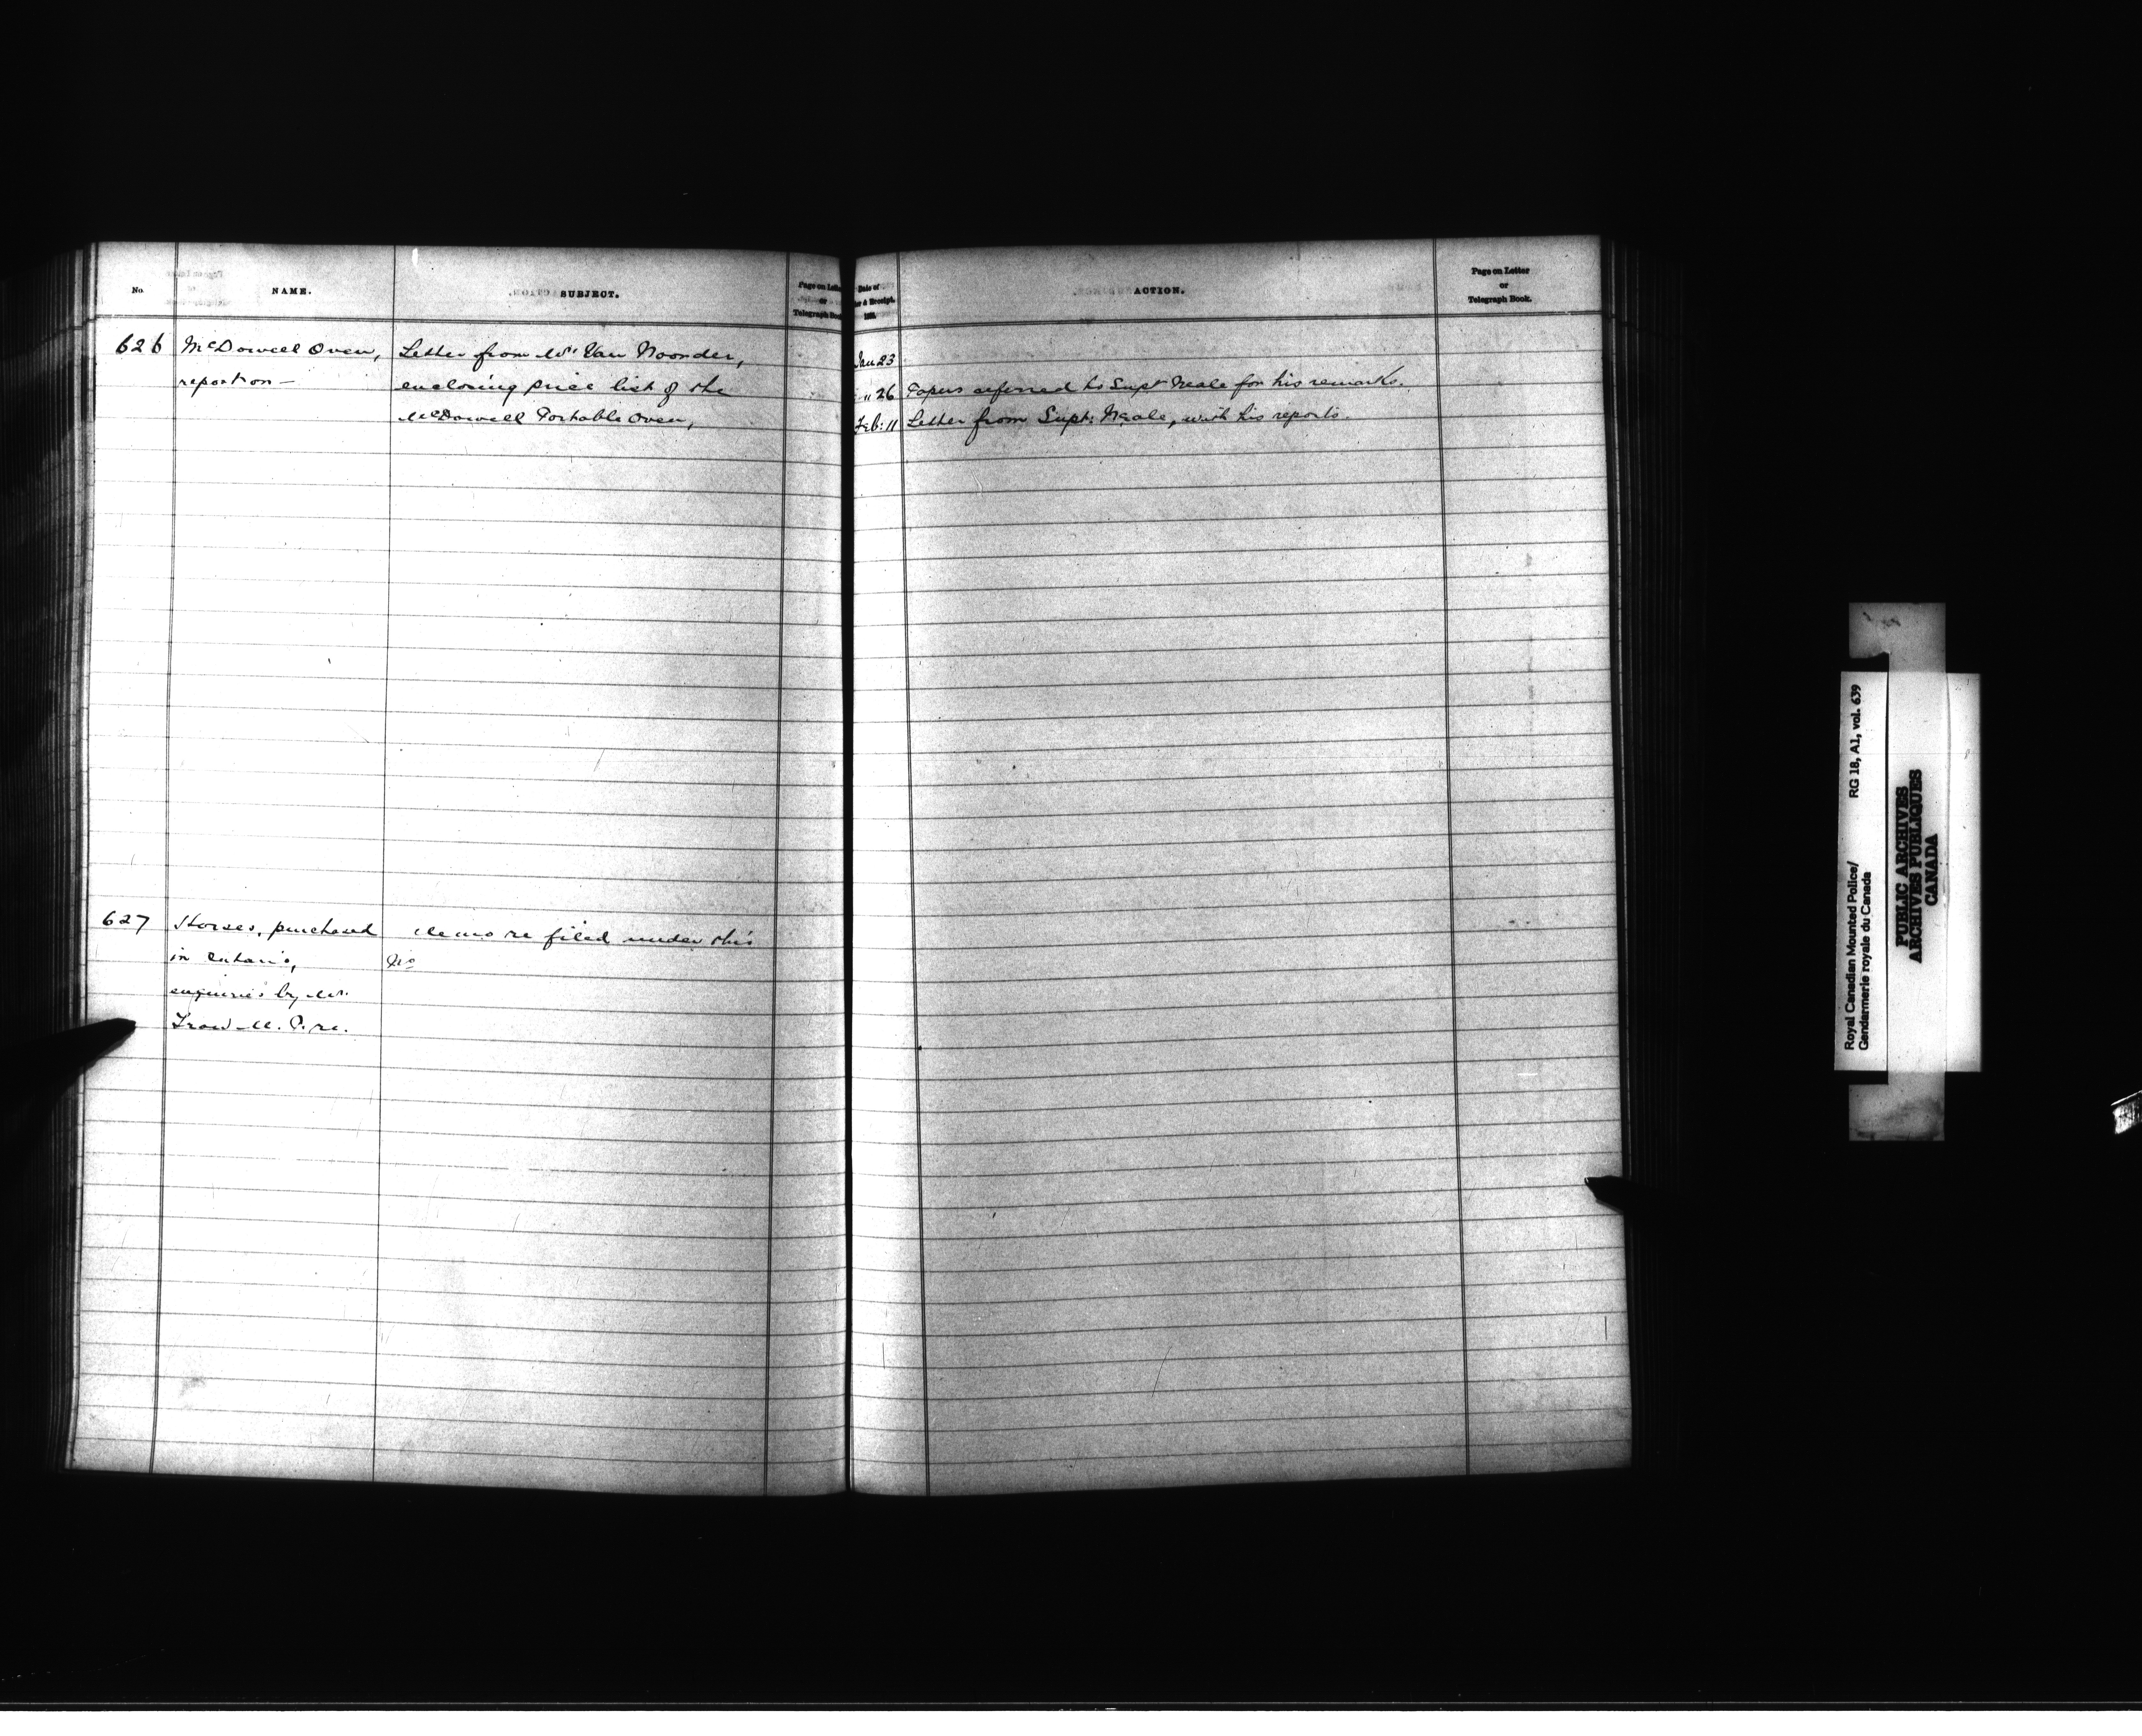 No.
NAME.
SUBJECT.
Page on Letter
or
Telegraph Book
626
McDowell Oven,
report on —
Letter from Mr Van Noorder,
enclosing price list of the
McDowell Portable Oven,
627
Horses, purchased
in Ontario,
enquiries by Mr.
Trow M. P. re.
Memo re filed under this
No
Date of
& Receipt.
188
ACTION.
Page on Letter
or
Telegraph Book.
Jan 23
" 26 Papers referred to Supt Neale for his remarks.
Feb: 11 Letter from Supt: Neale, with his reports.
Royal Canadian Mounted Police/ RG 18, A1, vol. 639
Gendarmerie royale du Canada
PUBLIC ARCHIVES
ARCHIVES PUBLIQUES
CANADA